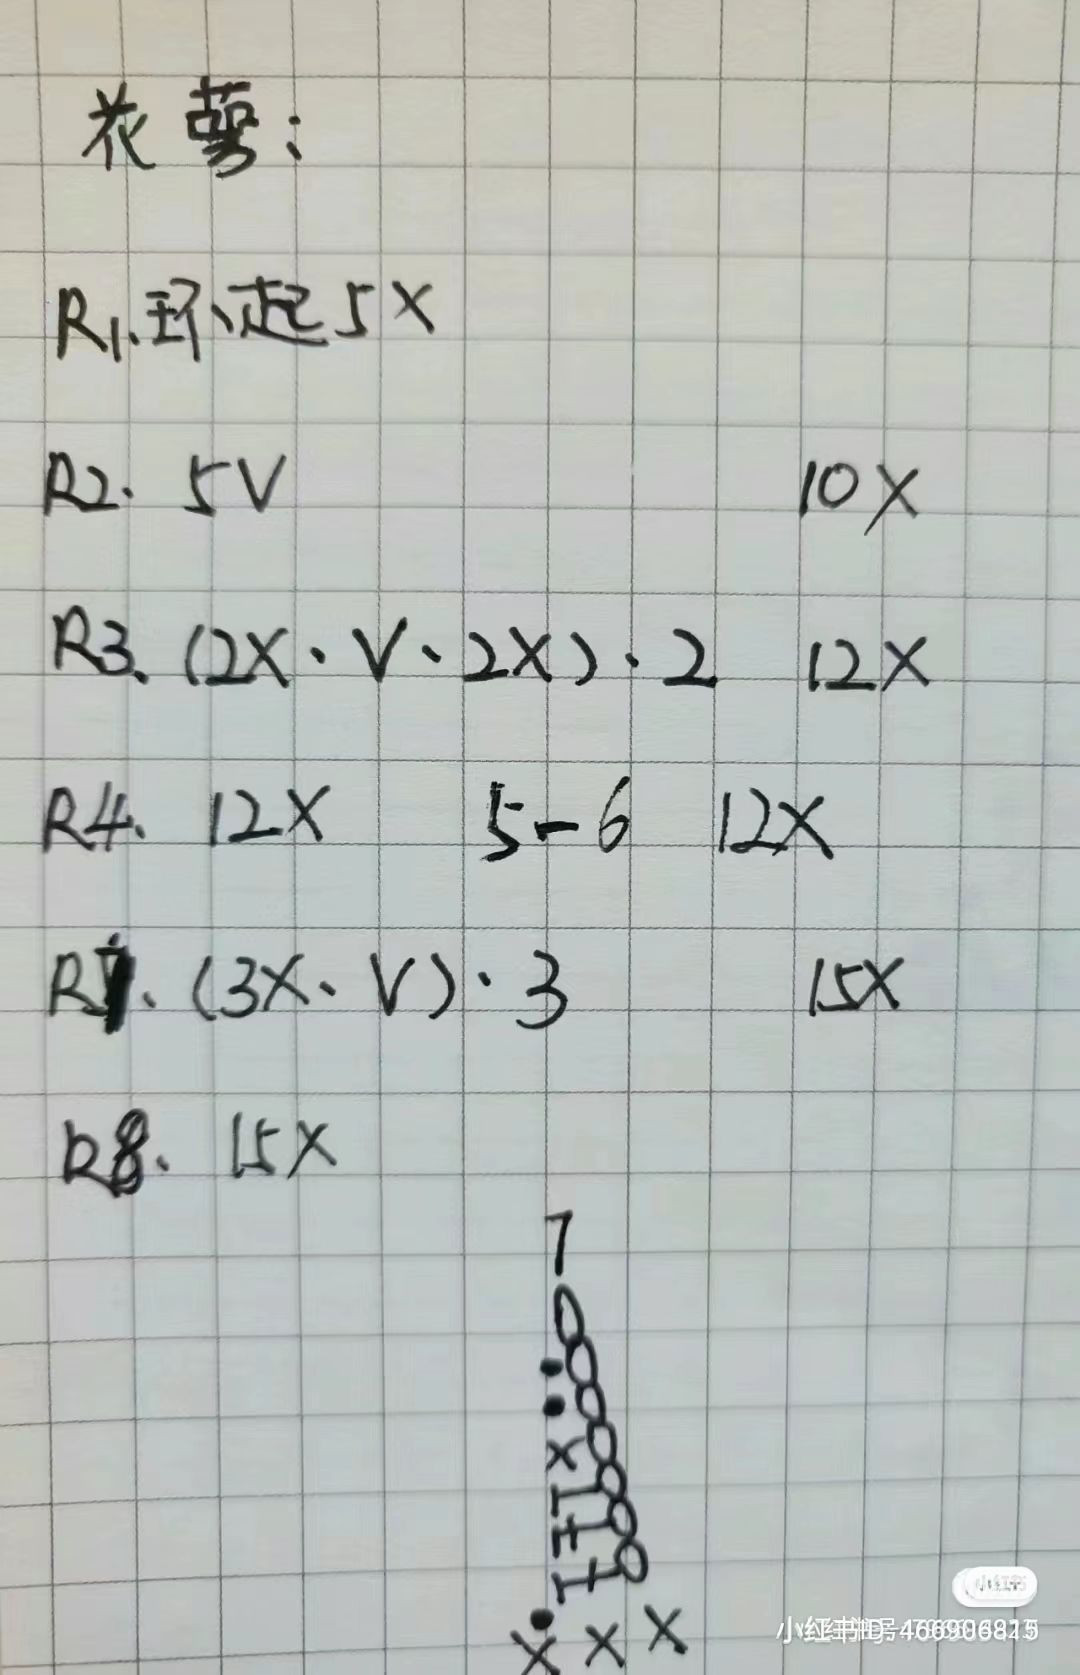 花萼:
R1.环起5X
R2. 5V 10X
R3. (2X·V·2X)·2 12X
R4. 12X 5-6 12X
R7. (3X·V)·3 15X
R8. 15X
7
X
X X X
小红书